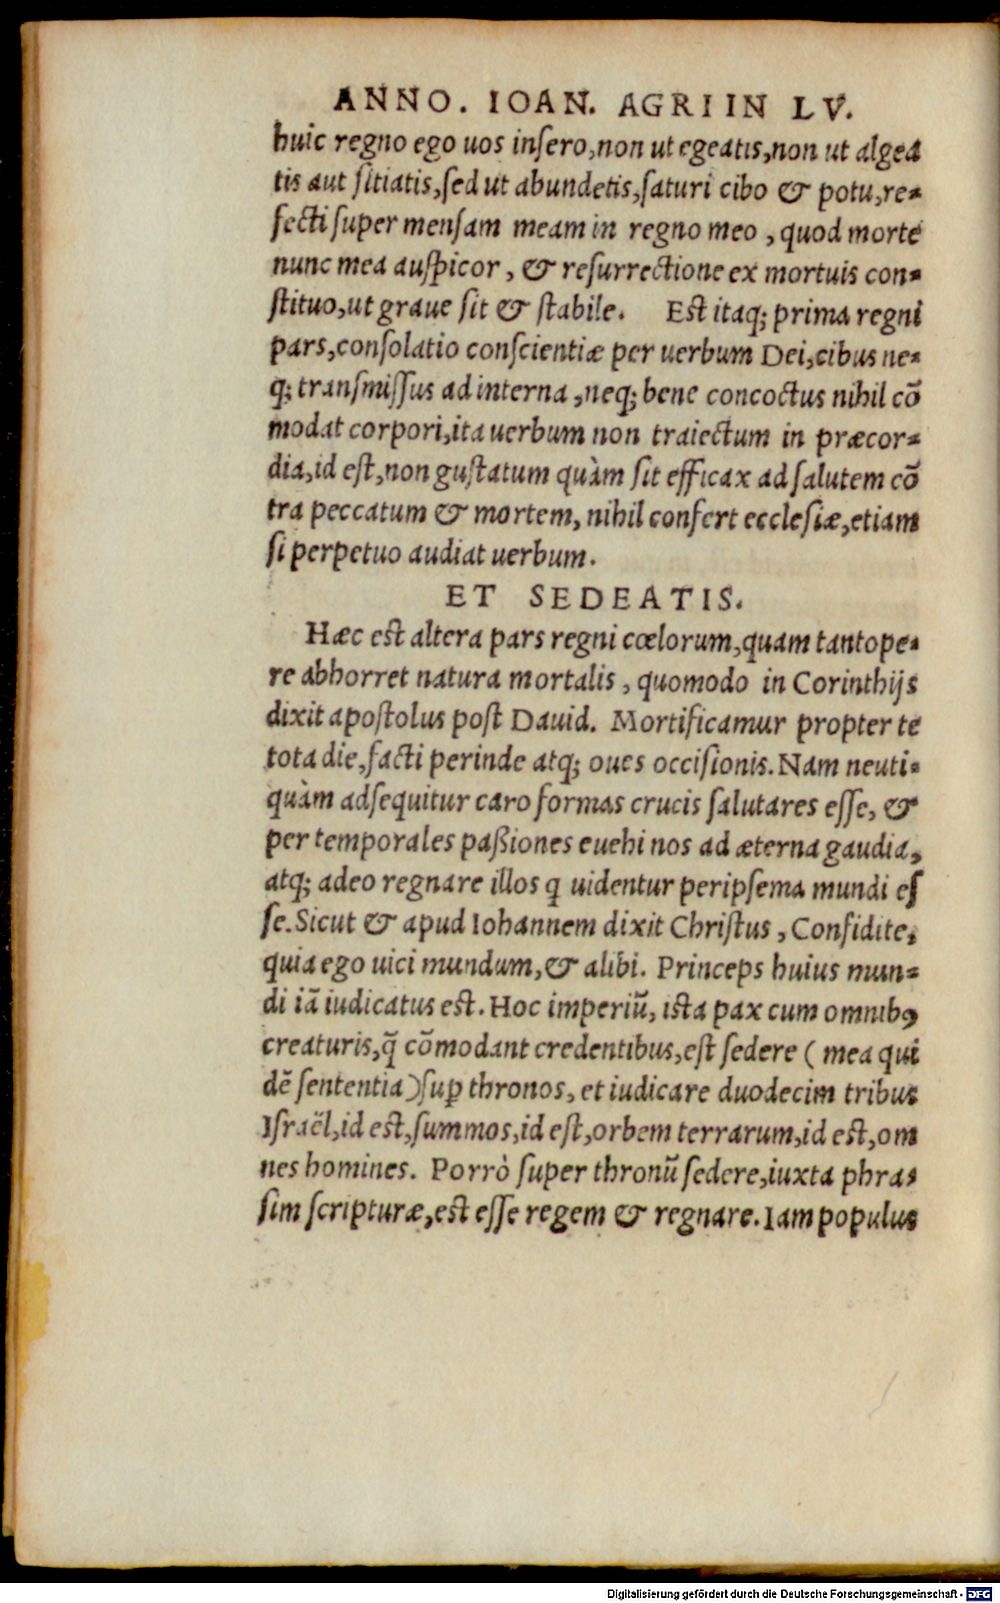 ANNO. IOAN. AGRI IN LV.
huic regno ego uos insero, non ut egeatis, non ut algea
tis aut sitiatis, sed ut abundetis, saturi cibo & potu, re=
fecti super mensam meam in regno meo, quod morte
nunc mea auspicor, & resurrectione ex mortuis con=
stituo, ut graue sit & stabile. Est itaq; prima regni
pars, consolatio conscientiæ per uerbum Dei, cibus ne=
q; transmissus ad interna, neq; bene concoctus nihil cō
modat corpori, ita uerbum non traiectum in præcor=
dia, id est, non gustatum quàm sit efficax ad salutem cō
tra peccatum & mortem, nihil confert ecclesiæ, etiam
si perpetuo audiat uerbum.
ET SEDEATIS.
Hæc est altera pars regni cœlorum, quam tantope=
re abhorret natura mortalis, quomodo in Corinthijs
dixit apostolus post Dauid. Mortificamur propter te
tota die, facti perinde atq; oues occisionis. Nam neuti=
quàm adsequitur caro formas crucis salutares esse, &
per temporales paßiones euehi nos ad æterna gaudia,
atq; adeo regnare illos q uidentur peripsema mundi es
se. Sicut & apud Iohannem dixit Christus, Confidite,
quia ego uici mundum, & alibi. Princeps huius mun=
di iā iudicatus est. Hoc imperiū, ista pax cum omnibꝰ
creaturis, q̄ cōmodant credentibus, est sedere ( mea qui
dē sententia ) suꝑ thronos, et iudicare duodecim tribus
Israël, id est, summos, id est, orbem terrarum, id est, om
nes homines. Porrò super thronū sedere, iuxta phras
sim scripturæ, est esse regem & regnare. Iam populus
Digitalisierung gefördert durch die Deutsche Forschungsgemeinschaft - DFG